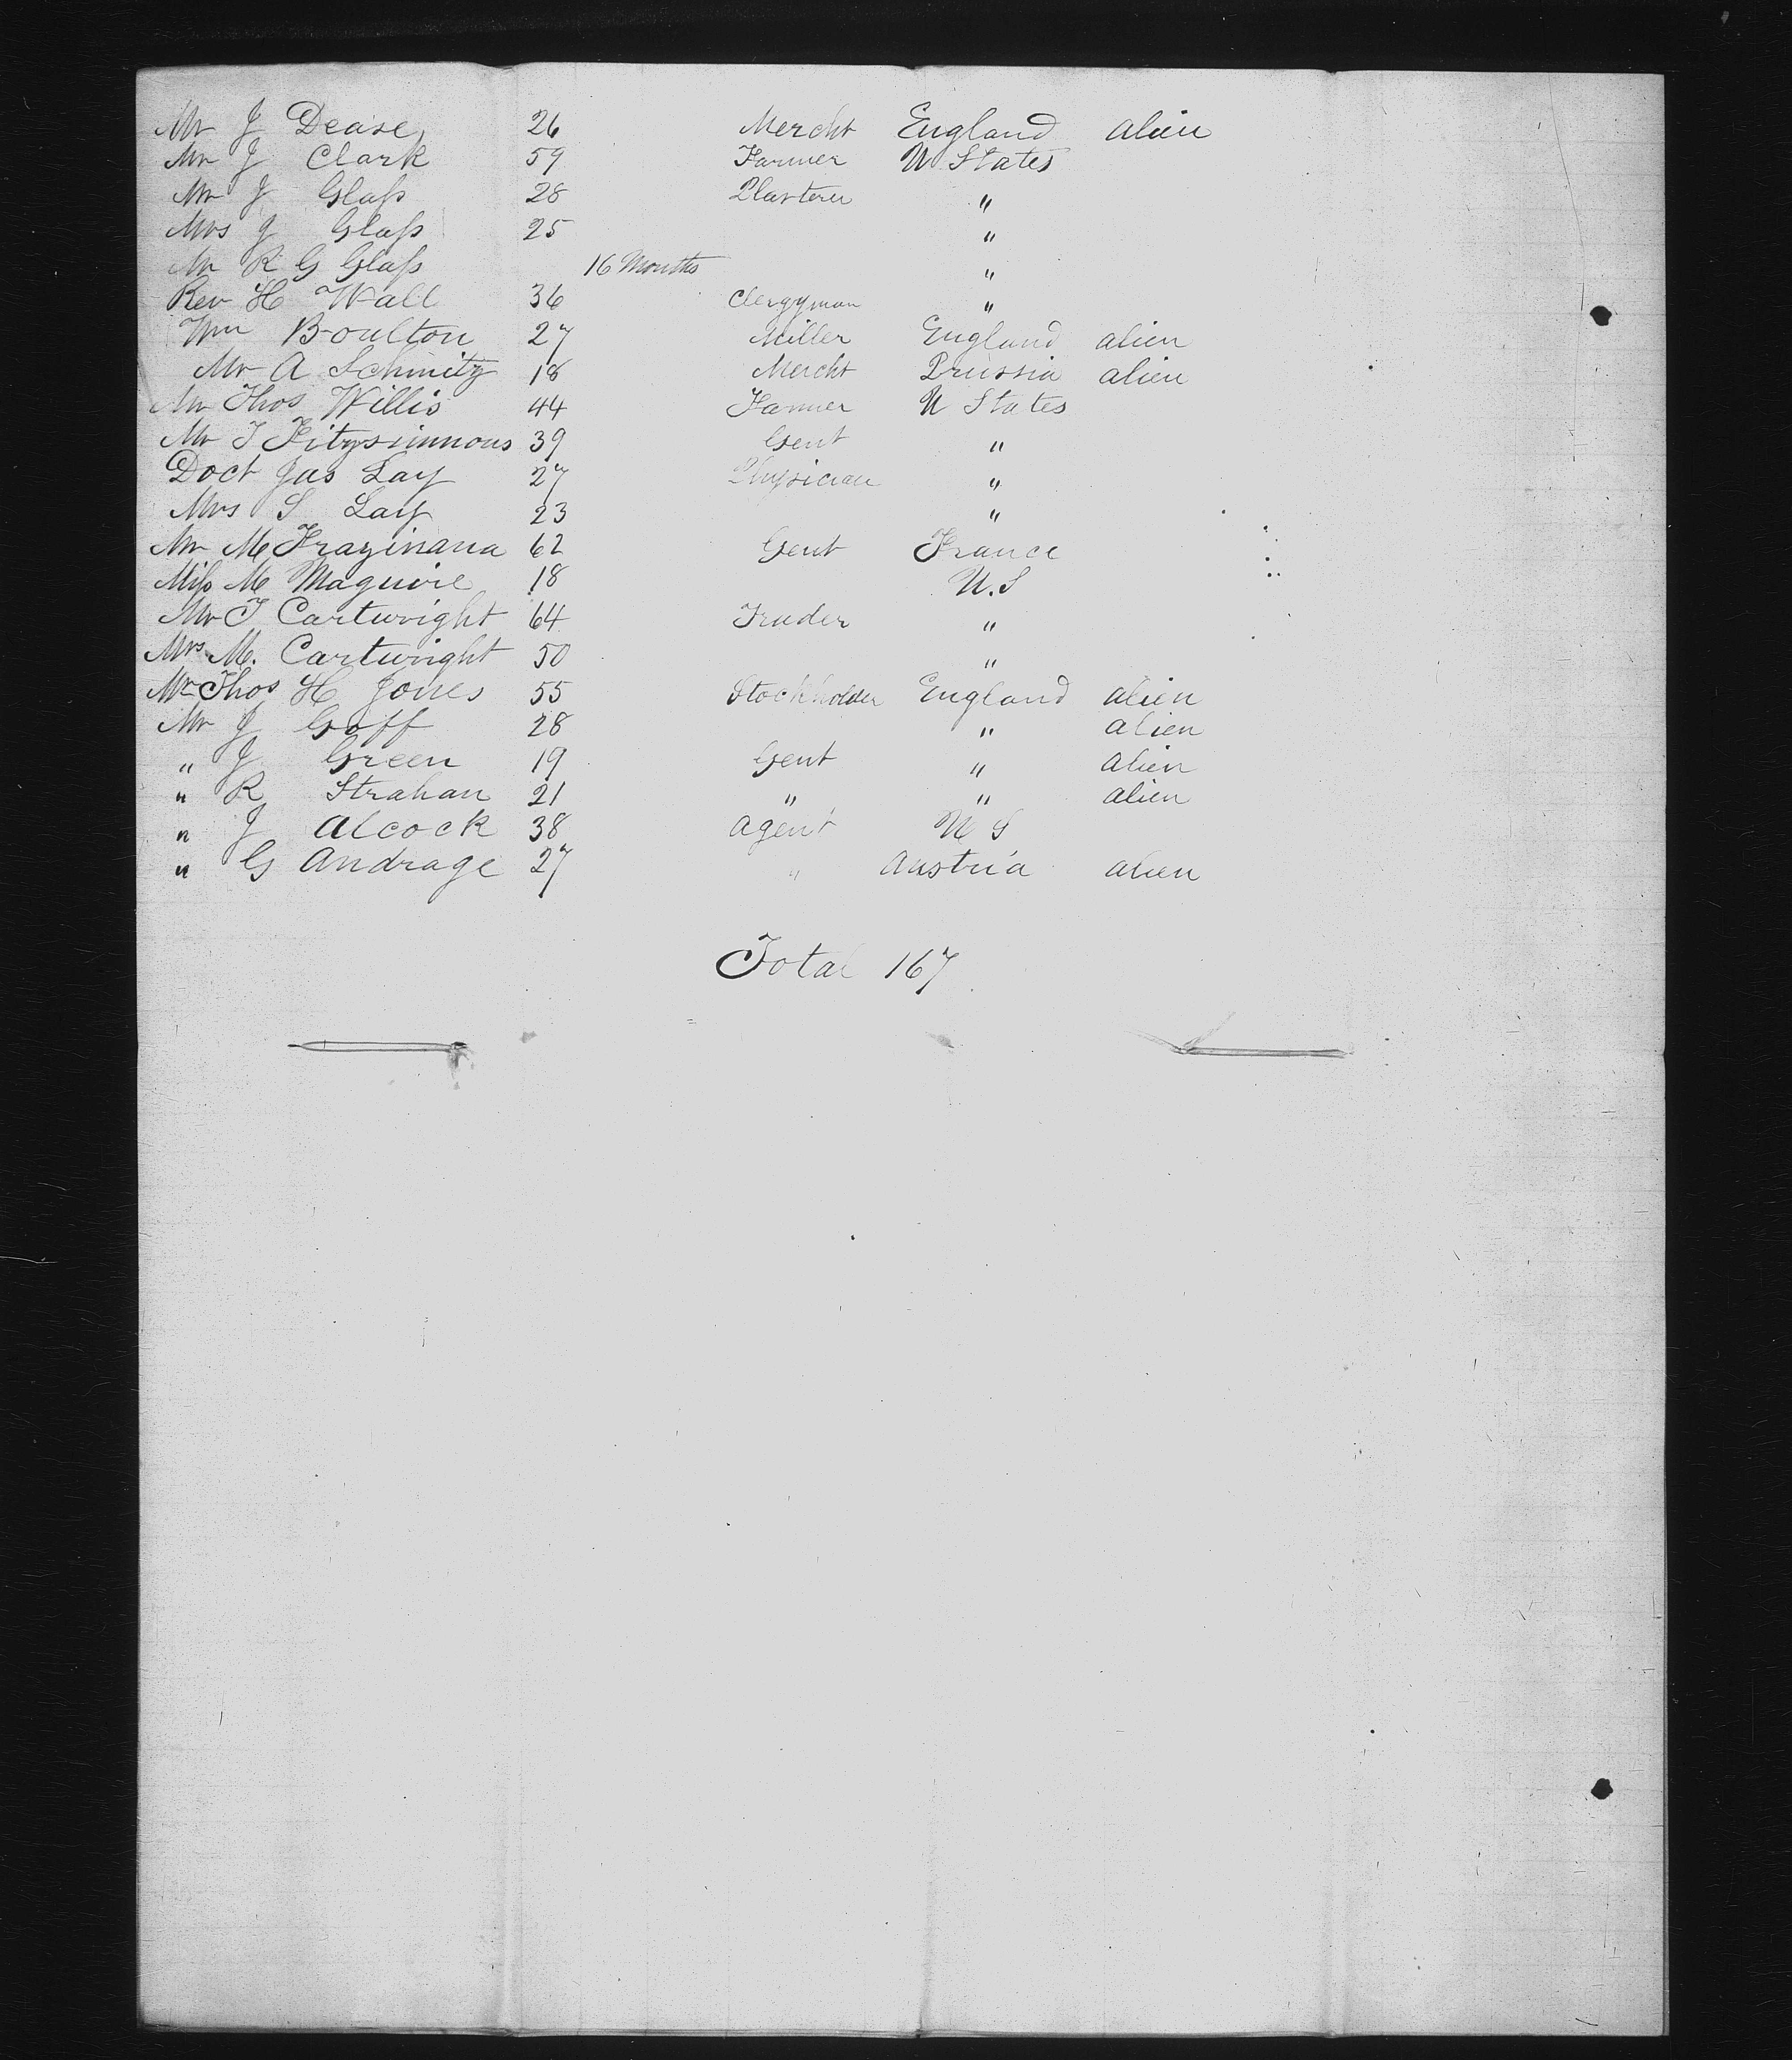 Mr J Dease 26 Mercht England alien
Mr J Clark 59 Farmer U States
Mr J Glass 28 Plasterer "
Mrs J Glass 25 "
Mr R G Glass 16 Months "
Rev H Wall 36 Clergyman "
Wm Boulton 27 Miller England alien
Mr A Schmitz 18 Mercht Prussia alien
Mr Thos Willis 44 Farmer U States
Mr T Fitzsimmons 39 Gent "
Doct Jas Lay 27 Physician "
Mrs S Lay 23 "
Mr M Frazinana 62 Gent France
Miss M Maguire 18 U.S
Mr T Cartwright 64 Trader "
Mrs M. Cartwright 50 "
Mr Thos H Jones 55 Stockholder England alien
Mr J Goff 28 " alien
" J Green 19 Gent " alien
" R Strahan 21 " " alien
" J Alcock 38 Agent U S
" G Andrage 27 " Austria alien
Total 167